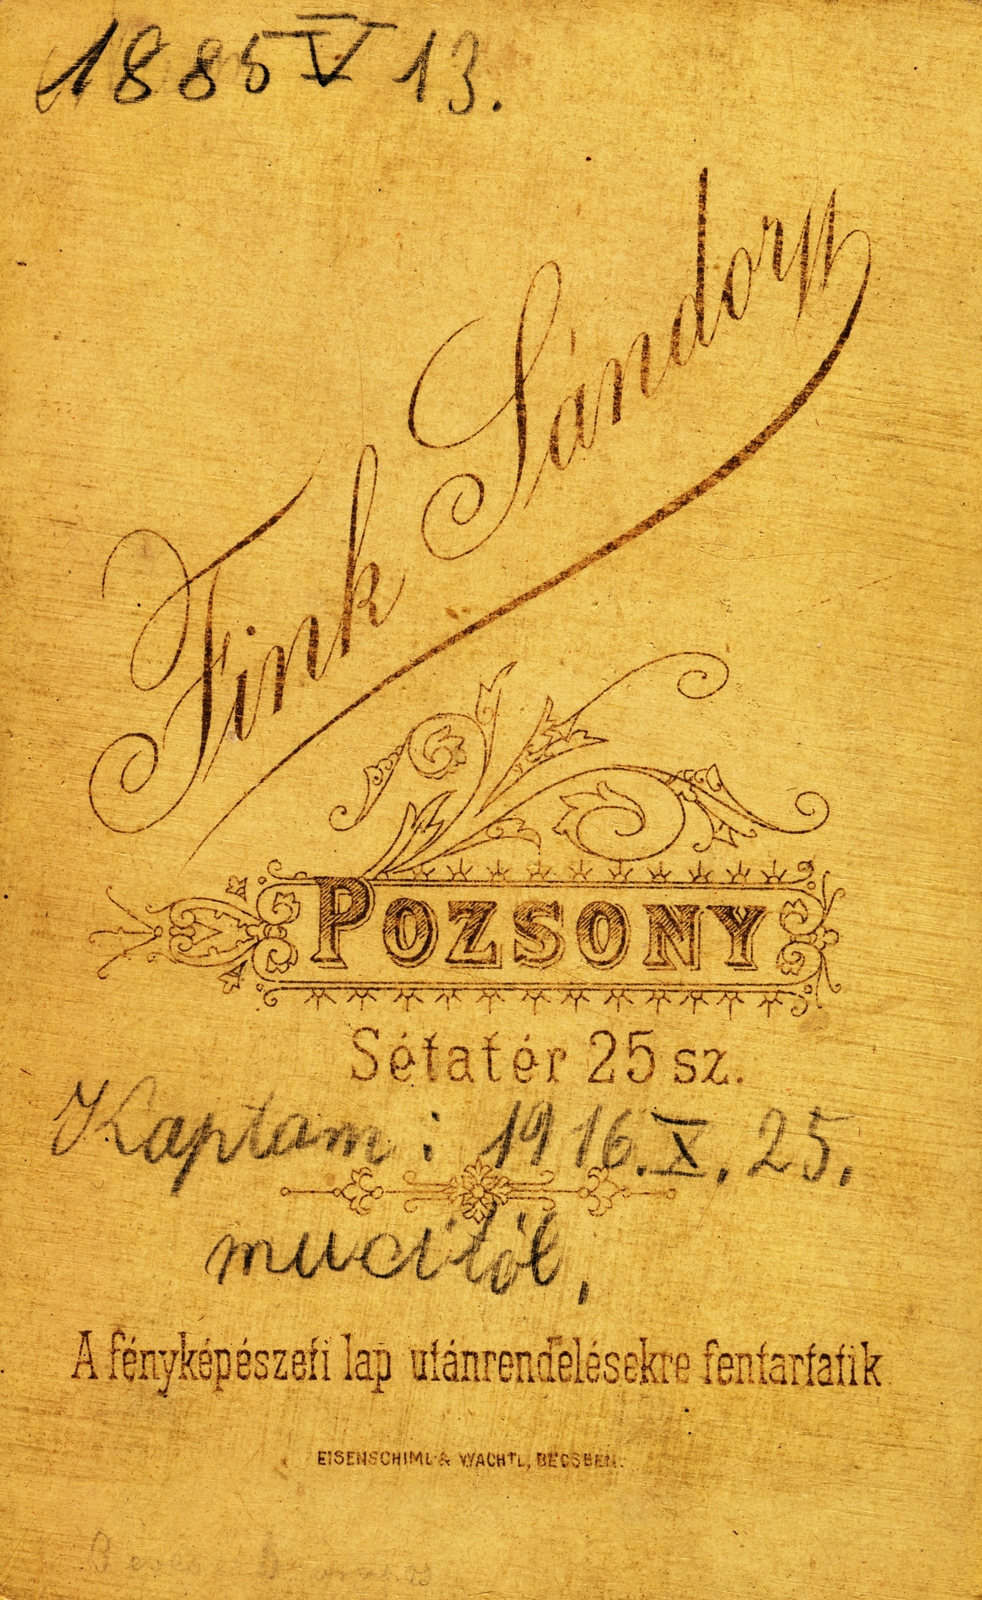 1885 V 13.
Fink Sándor
POZSONY
Sétatér 25 sz.
Kaptam: 1916. X. 25.
mucitól,
A fényképészeti lap utánrendelésekre fentartatik
EISENSCHIML & WACHTL, BÉCSBEN.